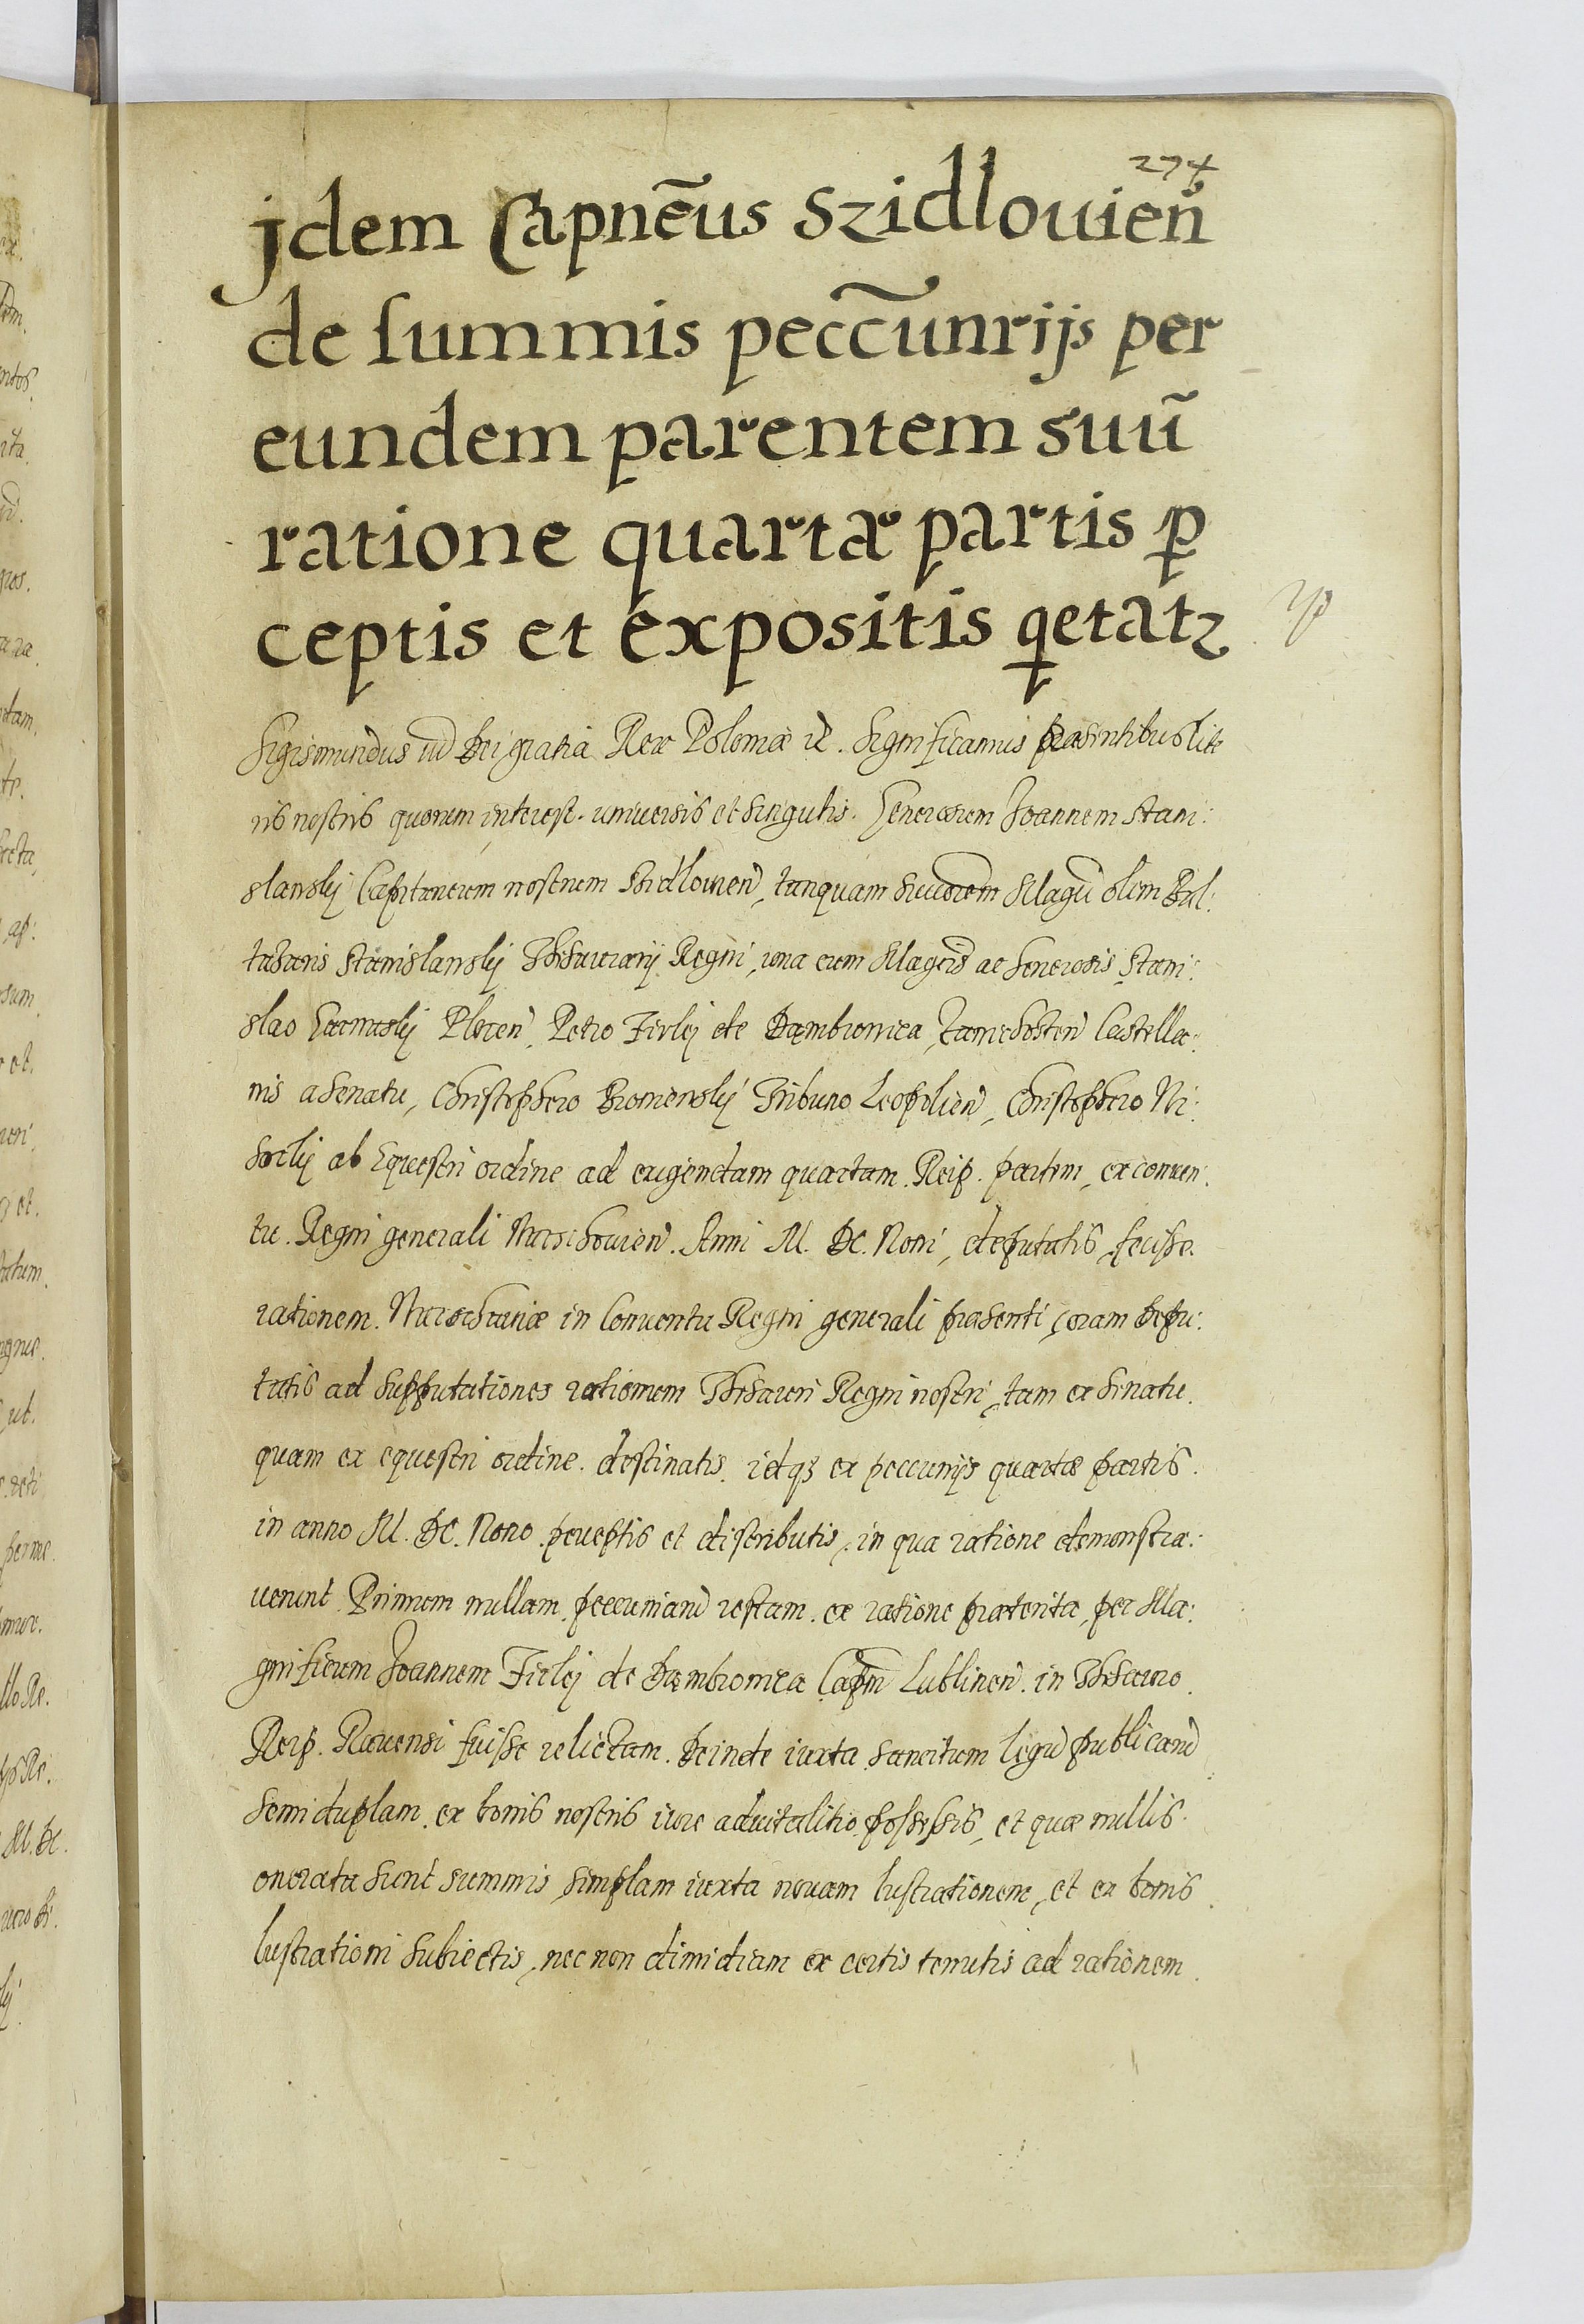 274
jdem Capnēus Szidlouien̄
de summis peccūnrijs per
eundem parentem suū
ratione quartæ partis ꝑ
ceptis et expositis qetatz
Sigismundus iii Dei gratia Rex Poloniæ &c. Significamus præsentibus litt
ris nostris quorum interest. universis et singulis. Generosum Joannem Stani:
slawskij Capitaneum nostrum Szidlouien, tanquam Magci olim Bal:
tasaris Stanislawskij Thesaurarij Regni, una cum Magcis ac Generosis Stani:
slao Plocen, Petro Firlej de Dąmbrowica, Zawichosten Castella:
nis a Senatu, Christophoro Tribuno Leopolien, Christophoro Ni:
ab Equestri ordine ad exigendam quartam. Reip. partem, ex conven:
tu. Regni generali Warschouien. Anni M. DC. Noni, deputatis, fecisse.
rationem. Warschaviæ in Conventu Regni generali præsenti, coram Depu:
tatis ad supputationes rationum Thesauri Regni nostri, tam ex Senatu.
quam ex equestri ordine. destinatis. idqȝ ex peccunijs quartæ partis.
in anno M. DC. Nono. perceptis et distributis, in qua ratione demonstra:
verunt. Primum nullam. peccuniarū restam. ex ratione præterita, per Ma:
gnificum Joannem Firlej de Dąmbrowica Capm Lublinen. in Thesauro.
Reip. Ravensi fuisse relictam. Deinde iuxta sancitum legū publicarū
Semiduplam. ex bonis nostris iure advitalitio possessis, et quæ nullis.
onerata sunt summis, simplam iuxta novam lustrationem, et ex bonis.
lustrationi subiectis, nec non dimidiam ex certis tenutis ad rationem.